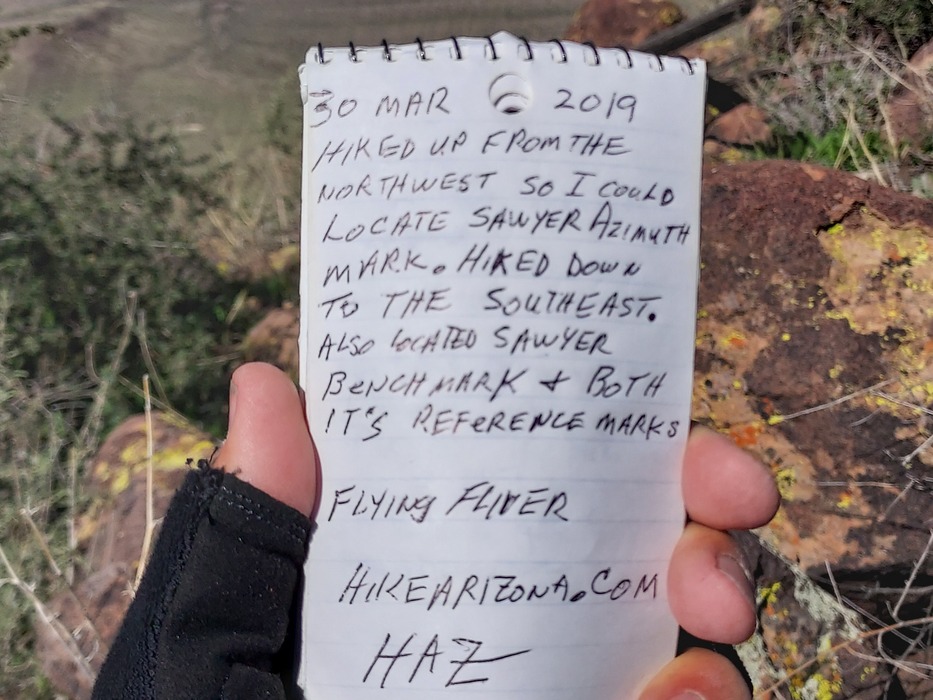 30 MAR 2019
HIKED UP FROM THE
NORTHWEST SO I COULD
LOCATE SAWYER AZIMUTH
MARK. HIKED DOWN
TO THE SOUTHEAST.
ALSO LOCATED SAWYER
BENCHMARK + BOTH
IT'S REFERENCE MARKS
FLYING FLIVER
HIKEARIZONA.COM
HAZ